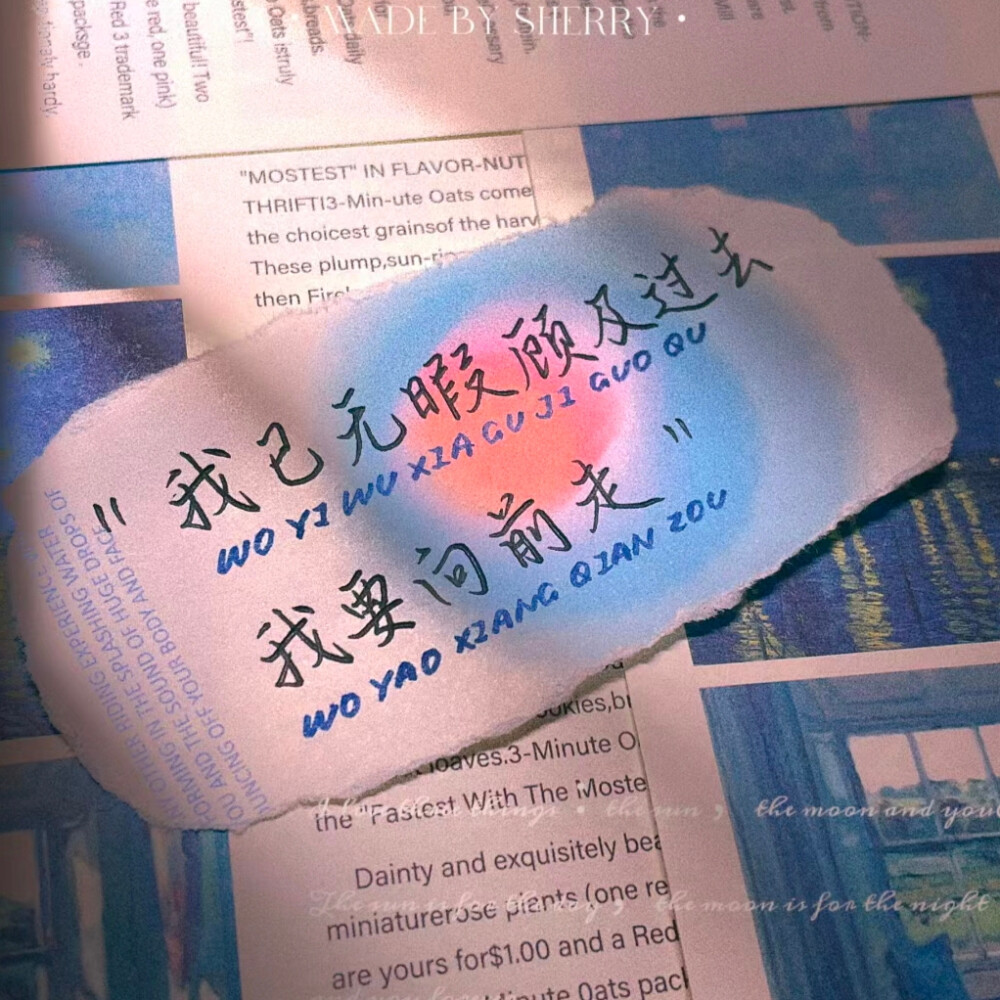 • MADE BY SHERRY •
ITION-
from
are
Will
the
ersary
daily
breads.
Oats istruly
stest"!
beautiful! Two
e red, one pink)
Red 3 trademark
packsge.
hardy.
"MOSTEST" IN FLAVOR-NUT
THRIFTI3-Min-ute Oats come
the choicest grainsof the harv
These plump,sun-rip
then Fire
"我已无暇顾及过去
WO YI WU XIA GU JI GUO QU
我要向前走"
WO YAO XIANG QIAN ZOU
NY OTHER RIDING EXPERIENCE
FORMING IN THE SPLASHING WATER
OU AND THE SOUND OF HUGE DROPS OF
UNCING OFF YOUR BODY AND FACE
ookies,br
loaves.3-Minute O
the "Fastest With The Moste
the sun , the moon and you
Dainty and exquisitely bea
miniaturerose plants (one re
The sun is for the day , the moon is for the night
are yours for$1.00 and a Red
inute Oats pack